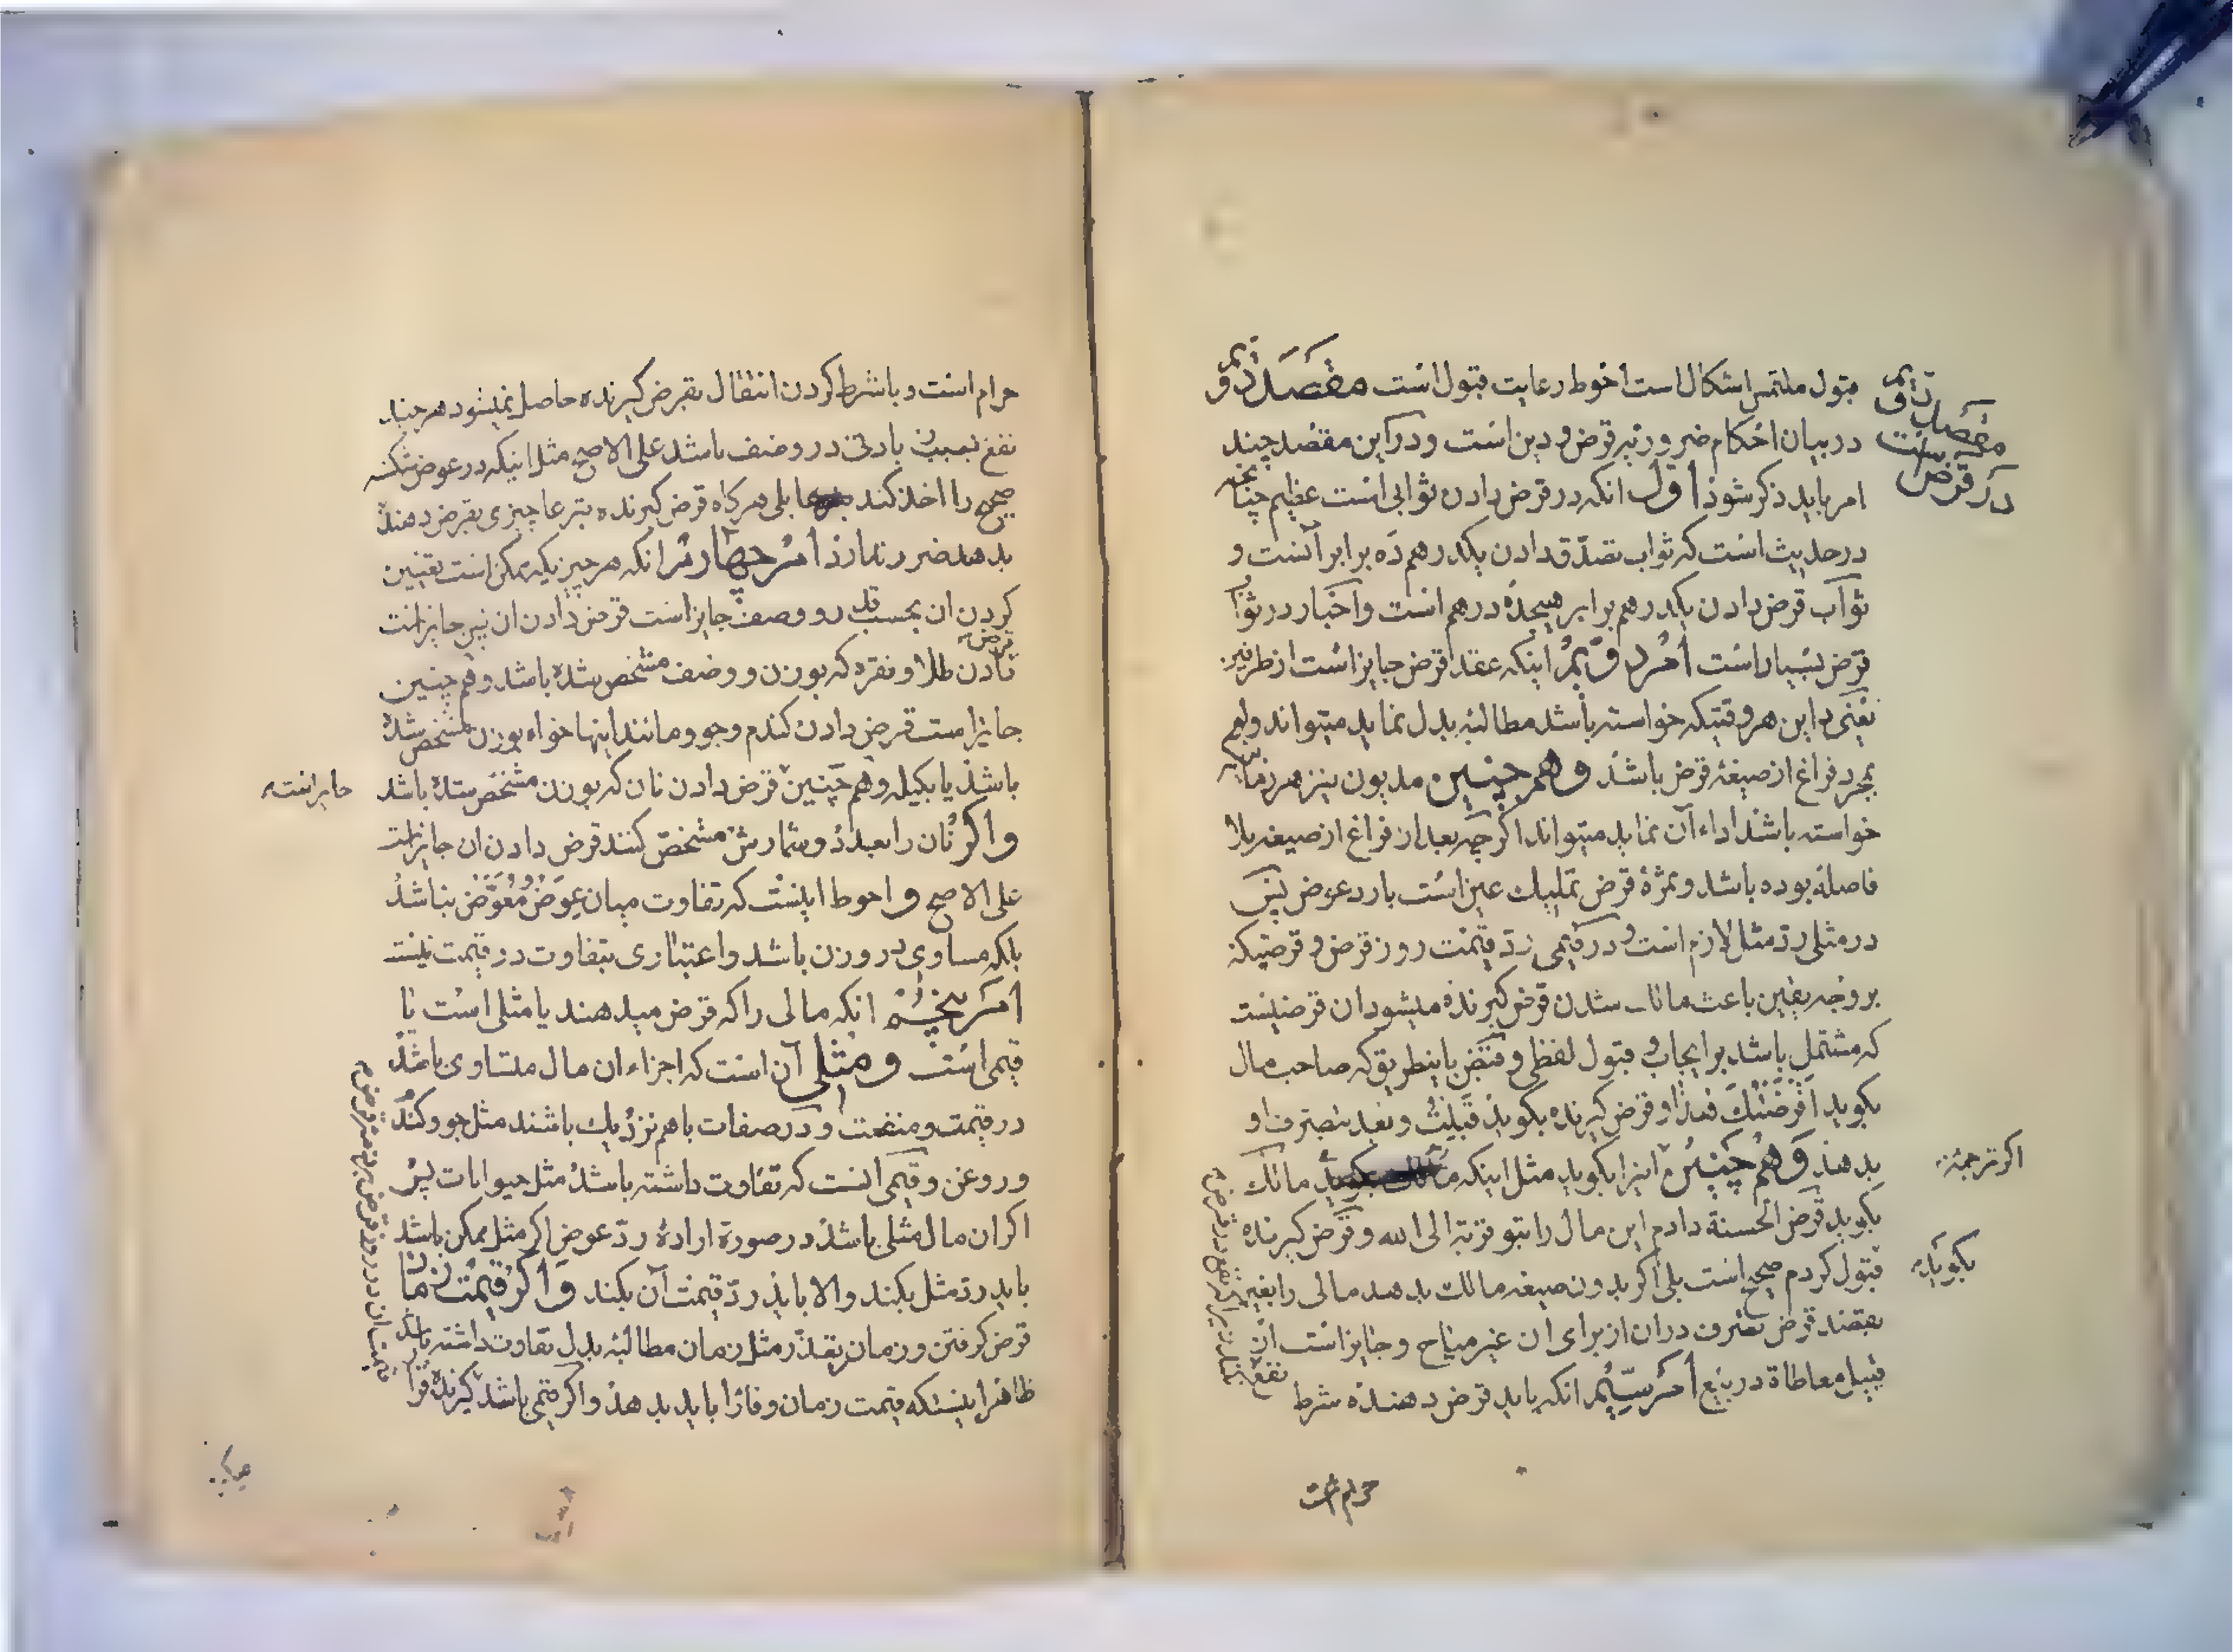 قبول ملتمس اشکال است احوط رعایت قبول است مقصد دویم
در بیان احکام ضروریه قرض و دین است و در این مقصد چند
امر باید ذکر شود اول انکه در قرض دادن ثوابی است عظیم چنانچه
در حدیث است که ثواب تصدّق دادن یکدرهم ده برابر آنست و
ثواب قرض دادن یکدرهم برابر هیجده درهم است و اخبار در ثواب
قرض بسیار است امر دویم اینکه عقد قرض جایز است از طرفین
یعنی داین هر وقتیکه خواسته باشد مطالبهٔ بدل نماید میتواند ولهم
بمجرد فراغ از صیغهٔ قرض باشد وهم چنین مدیون نیز هر زمانیکه
خواسته باشد اداء آن نماید میتواند اکر چه بعد از فراغ از صیغه بلا
فاصله بوده باشد و ثمرهٔ قرض تملیک عین است با رد عوض پس
در مثلی ردّ مثل لازم است و در قیمی ردّ قیمت روز قرض و قرضیکه
بر وجه یقین باعث مالک شدن قرض کیرنده میشود ان قرضیست
که مشتمل باشد بر ایجاب و قبول لفظی و قبض باینطریق که صاحب مال
بکوید اَقْرَضْتُكَ هذا و قرض کیرنده بکوید قَبِلْتُ و بعد بتصرف او
بدهد وَهَم چنین است اینرا بکوید مثل اینکه مالک
بکوید قرض الحسنة دادم این مال را بتو قربة الی الله و قرض کیرنده
قبول کردم صحیح است بلی اکر بدون صیغه مالک بدهد مالی را بغیر
بقصد قرض تصرف در ان از برای ان غیر مباح و جایز است از
قبیل معاطاة در بیع امر سیّم انکه باید قرض دهنده شرط نفع
حرام است
مقصد دویم
در قرض است
اکر ترجمه
بکوید
حرام است و با شرط کردن انتقال بقرض کیرنده حاصل نمیشود هر چند
نفع بسبب زیادتی در وصف باشد علی الاصح مثل اینکه در عوض شکسته
صحیح را اخذ کند بلی هرکاه قرض کیرنده تبرعا چیزی بقرض دهنده
بدهد ضرر ندارد امر چهارم انکه هر چیزیکه ممکن است تعیین
کردن ان بحسب قدر و وصف جایز است قرض دادن ان پس جایز است
قرض دادن طلا و نقره که بوزن و وصف مشخص شده باشد و هم چنین
جایز است قرض دادن کندم و جو و مانند اینها خواه بوزن مشخص شده
باشد یا بکیله و هم چنین قرض دادن نان که بوزن مشخص شده باشد
جایز است
و اکر نان را بعدد و شمارش مشخص کنند قرض دادن ان جایز است
علی الاصح و احوط اینست که تفاوت میان عِوَض و مُعَوَّض نباشد
بلکه مساوی در وزن باشد و اعتباری بتفاوت در قیمت نیست
امر پنجم انکه مالی را که قرض میدهند یا مثلی است یا
قیمی است و مثلی آن است که اجزاء ان مال متساوی باشد
در قیمت و منفعت و در صفات باهم نزدیک باشند مثل جو و کندم
و روغن و قیمی انست که تفاوت داشته باشد مثل حیوانات پس
اکر ان مال مثلی باشد در صورة ارادهٔ ردّ عوض اکر مثل ممکن باشد
باید ردّ مثل بکند والا باید ردّ قیمت آن بکند وَ اکر قیمت زمان
قرض کرفتن و زمان تعذّر مثل و زمان مطالبهٔ بدل تفاوت داشته باشد
ظاهر اینستکه قیمت زمان وفا را باید بدهد و اکر قیمی باشد کیرندهٔ قرض